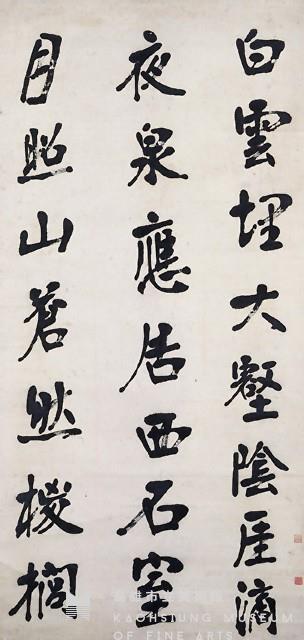 白雲埋大壑陰崖滴
夜泉應居西石室
月照山蒼然
高雄市立美術館
KAOHSIUNG MUSEUM
OF FINE ARTS